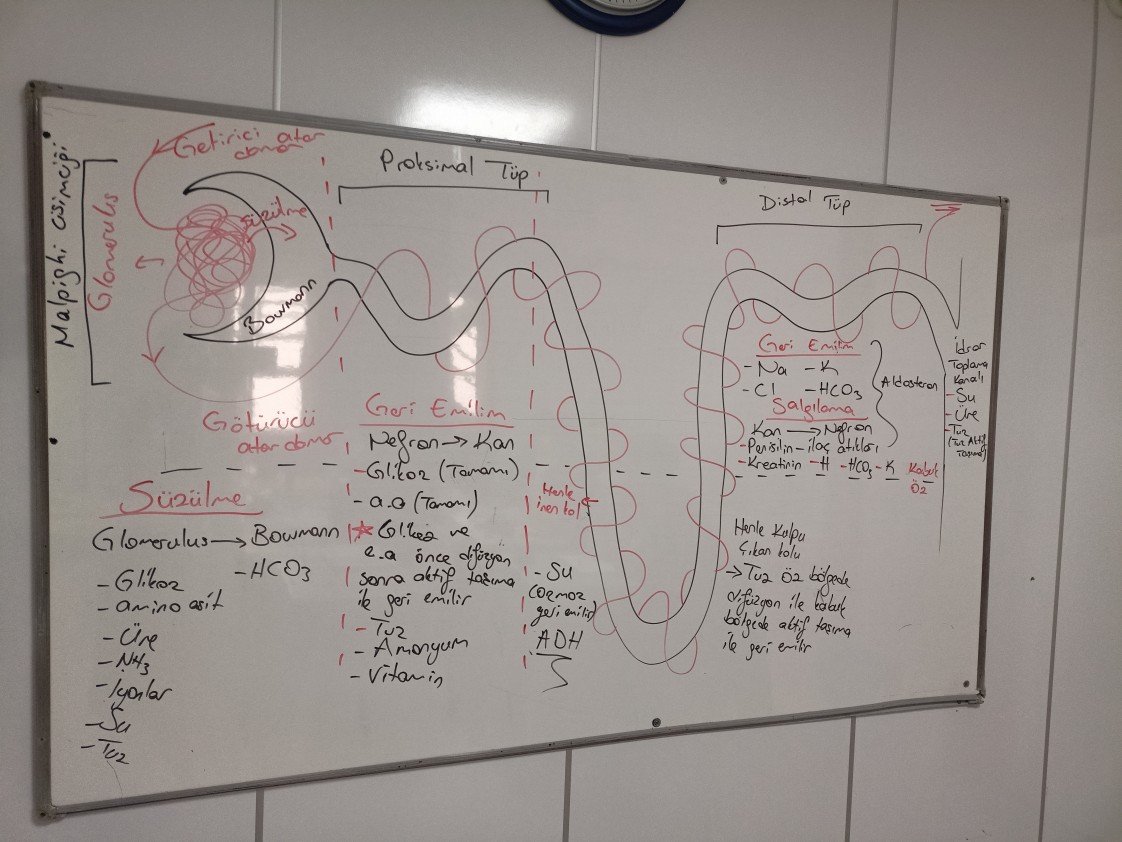 Malpighi cisimciği
Glomerulus
Getirici atar
damar
Süzülme
Bowmann
Götürücü
atar damar
Proksimal Tüp
Distal Tüp
Süzülme
Glomerulus → Bowmann
- Glikoz
- amino asit
- Üre
- NH3
- İyonlar
- Su
- Tuz
- HCO3
Geri Emilim
Nefron → Kan
- Glikoz (Tamamı)
- a.a (Tamamı)
★ Glikoz ve
a.a önce difüzyon
sonra aktif taşıma
ile geri emilir
- Tuz
- Amonyum
- Vitamin
Henle
inen kol
- Su
(Ozmoz
geri emilir)
ADH
Geri Emilim
- Na - K
- Cl - HCO3
Salgılama
Kan → Nefron
- Penisilin - ilaç atıkları
- Kreatinin - H - HCO3 - K
Aldosteron
Kabuk
Öz
Henle Kulpu
Çıkan kolu
→ Tuz Öz bölgede
difüzyon ile kabuk
bölgede aktif taşıma
ile geri emilir
İdrar
Toplama
Kanalı
- Su
- Üre
- Tuz
(Tuz Aktif
Taşıma)